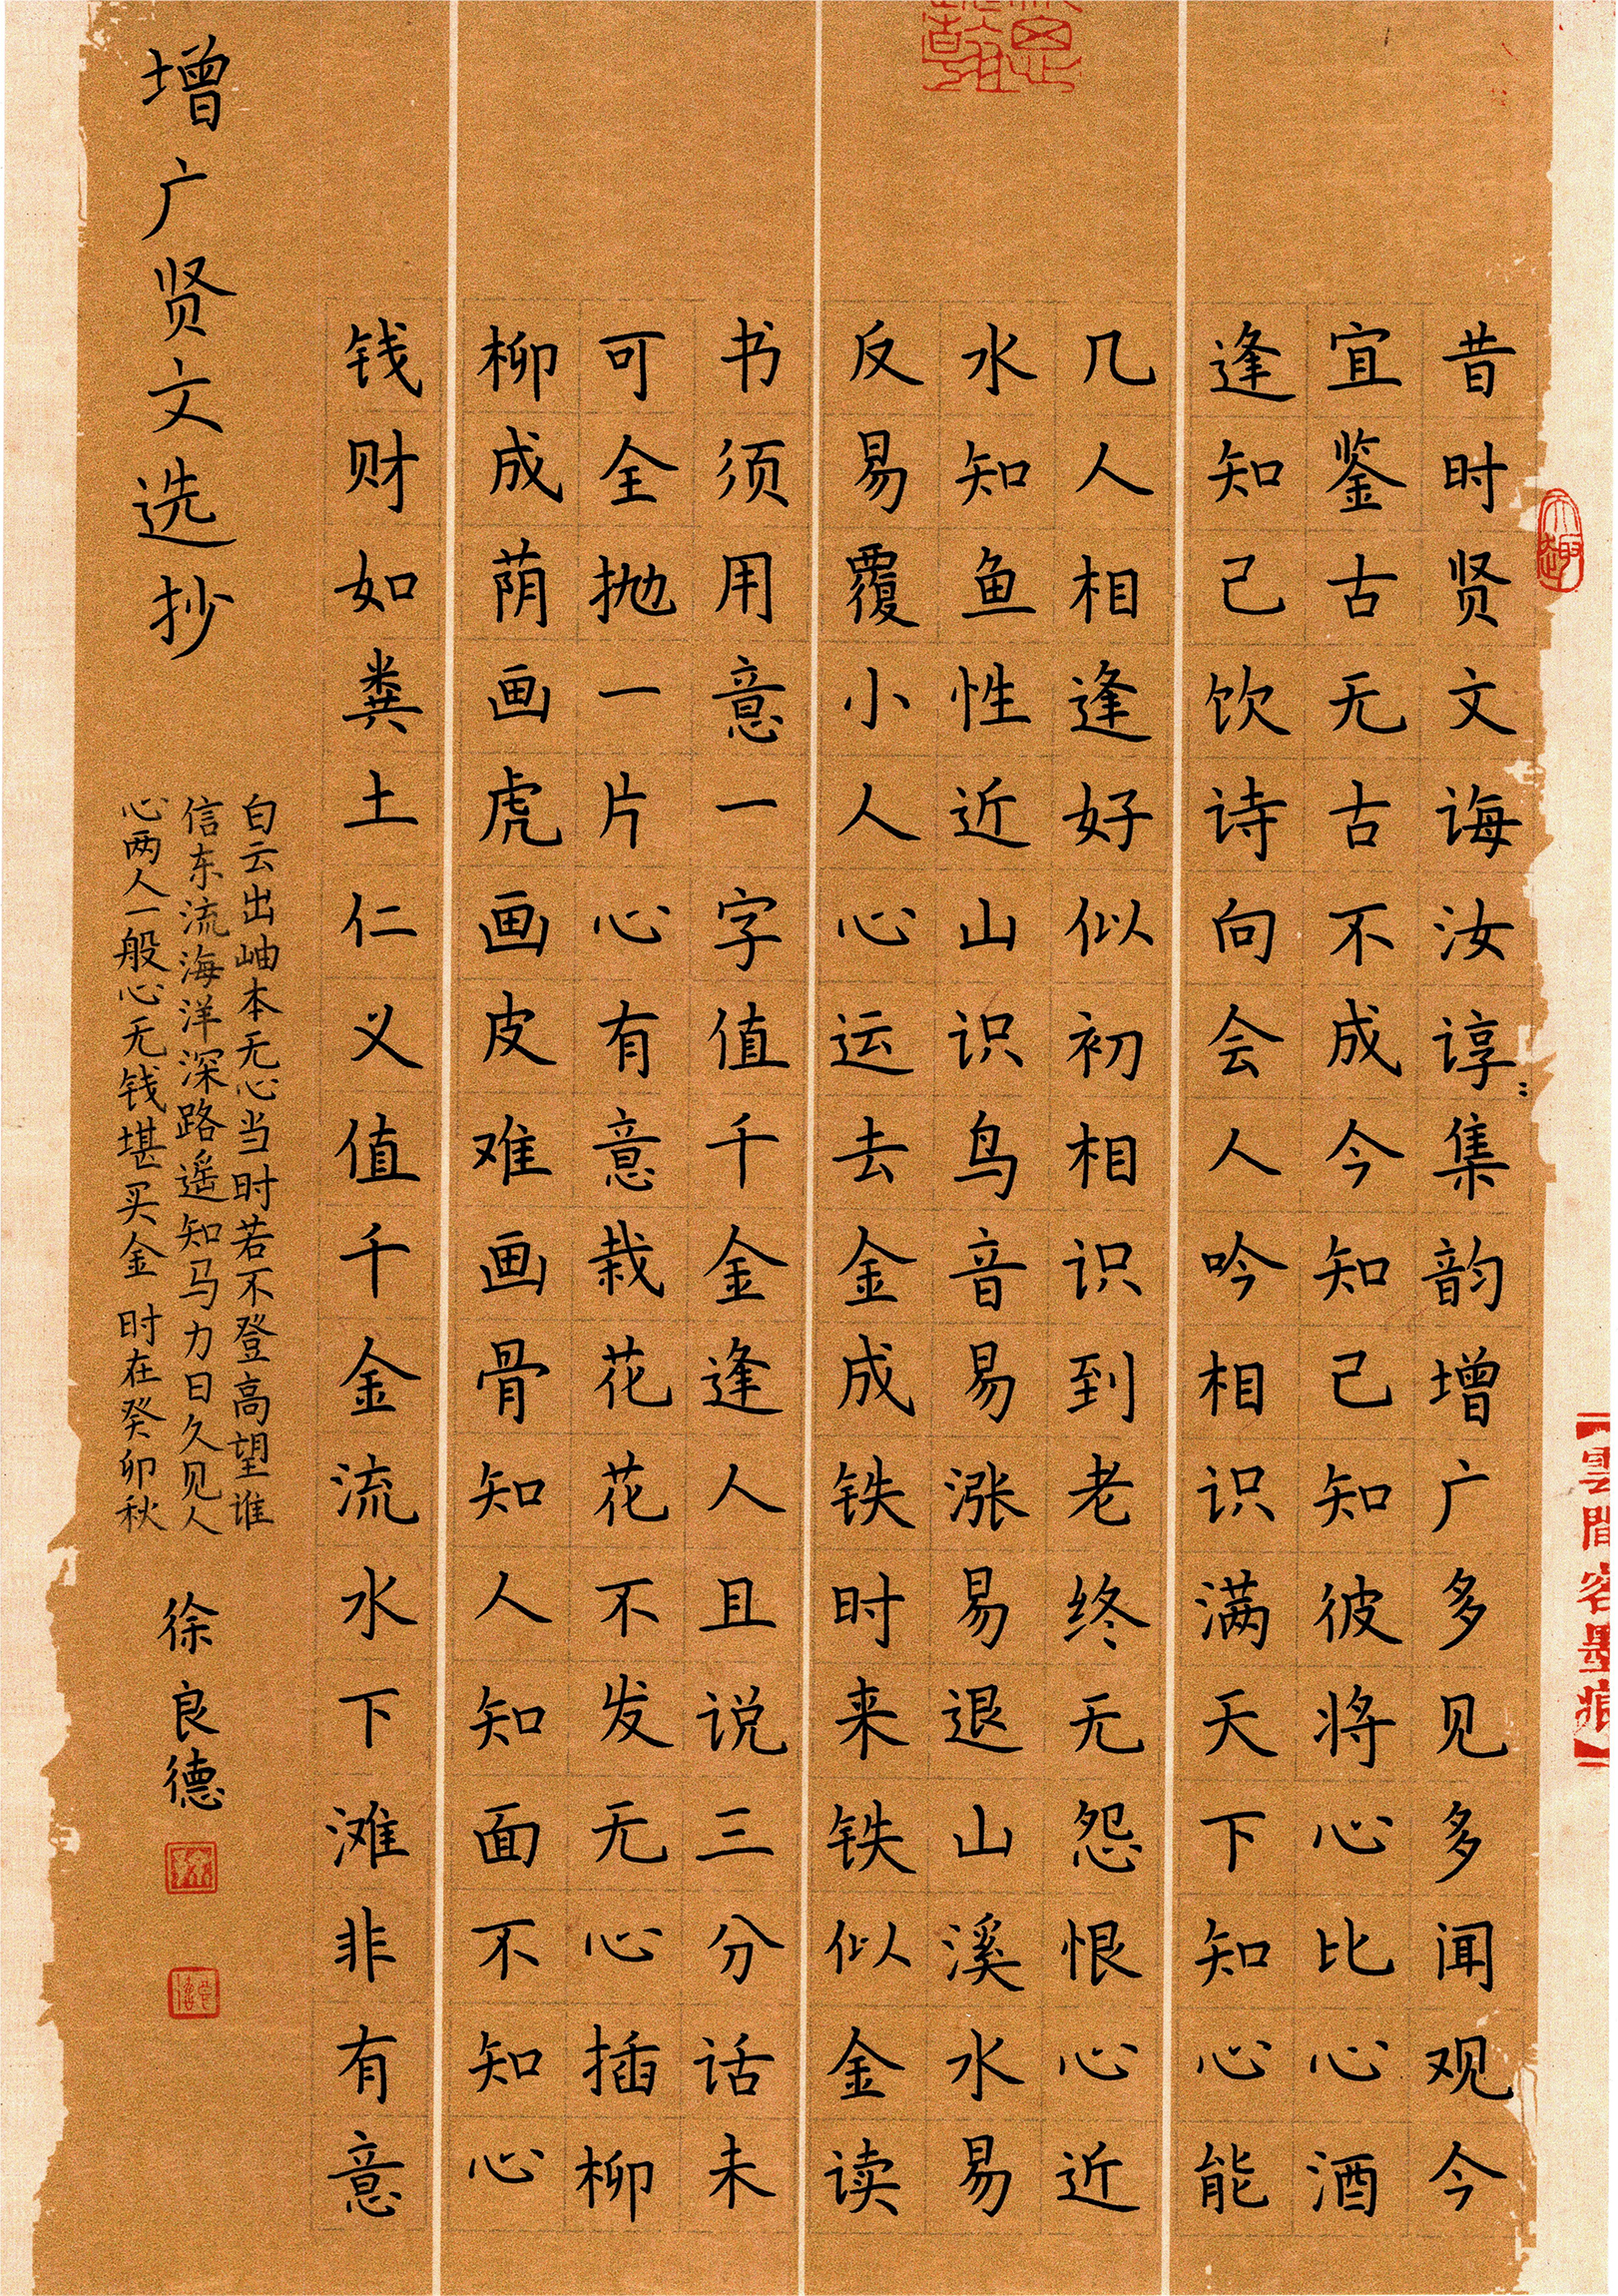 昔时贤文诲汝谆〻集韵增广多见多闻观今
宜鉴古无古不成今知己知彼将心比心酒
逢知己饮诗向会人吟相识满天下知心能
几人相逢好似初相识到老终无怨恨心近
水知鱼性近山识鸟音易涨易退山溪水易
反易覆小人心运去金成铁时来铁似金读
书须用意一字值千金逢人且说三分话未
可全抛一片心有意栽花花不发无心插柳
柳成荫画虎画皮难画骨知人知面不知心
钱财如粪土仁义值千金流水下滩非有意
白云出岫本无心当时若不登高望谁
信东流海洋深路遥知马力日久见人
心两人一般心无钱堪买金 时在癸卯秋
增广贤文选抄
徐良德
【雲間客墨痕】
天趣